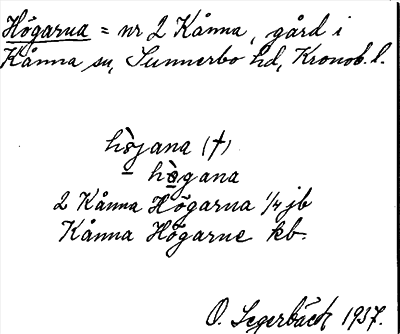 Högarna = nr 2 Kånna, gård i
Kånna sn, Sunnerbo hd, Kronob. l.
hò̱jana (†)
hò̱gana
2 Kånna Högarna 1/4 jb
Kånna Högarne kb.
O. Segerbäck 1937.